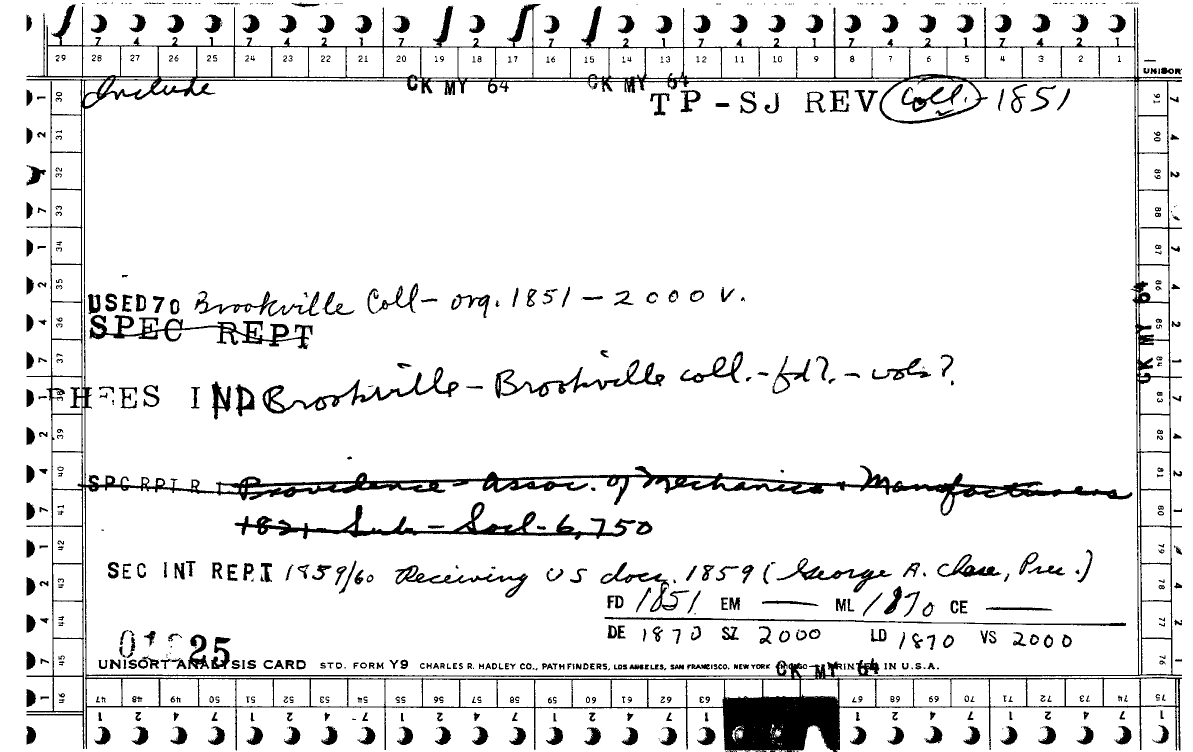 7 4 2 1 7 4 2 1 7 4 2 1 7 4 2 1 7 4 2 1 7 4 2 1 7 4 2 1
29 28 27 26 25 24 23 22 21 20 19 18 17 16 15 14 13 12 11 10 9 8 7 6 5 4 3 2 1
UNISORT
Include CK MY 64 CK MY 64
TP-SJ REV Coll. - 1851
USED 70 Brookville Coll - org. 1851 - 2000 V.
SPEC REPT
RHEES IND Brookville - Brookville coll. - fd? - vols?
SPC RPT R I Providence - Assoc. of Mechanics + Manufacturers
1821 Sub - Socl - 6,750
SEC INT REPT 1859/60 Receiving US docs. 1859 (George A. Chase, Pres.)
FD 1851 EM — ML 1870 CE —
DE 1870 SZ 2000 LD 1870 VS 2000
25
UNISORT ANALYSIS CARD STD. FORM Y9 CHARLES R. HADLEY CO., PATHFINDERS, LOS ANGELES, SAN FRANCISCO, NEW YORK PRINTED IN U.S.A.
CK MY 64
CK MY 64
30 31 32 33 34 35 36 37 38 39 40 41 42 43 44 45 46
91 90 89 88 87 86 85 84 83 82 81 80 79 78 77 76 75
47 48 49 50 51 52 53 54 55 56 57 58 59 60 61 62 63 67 68 69 70 71 72 73 74